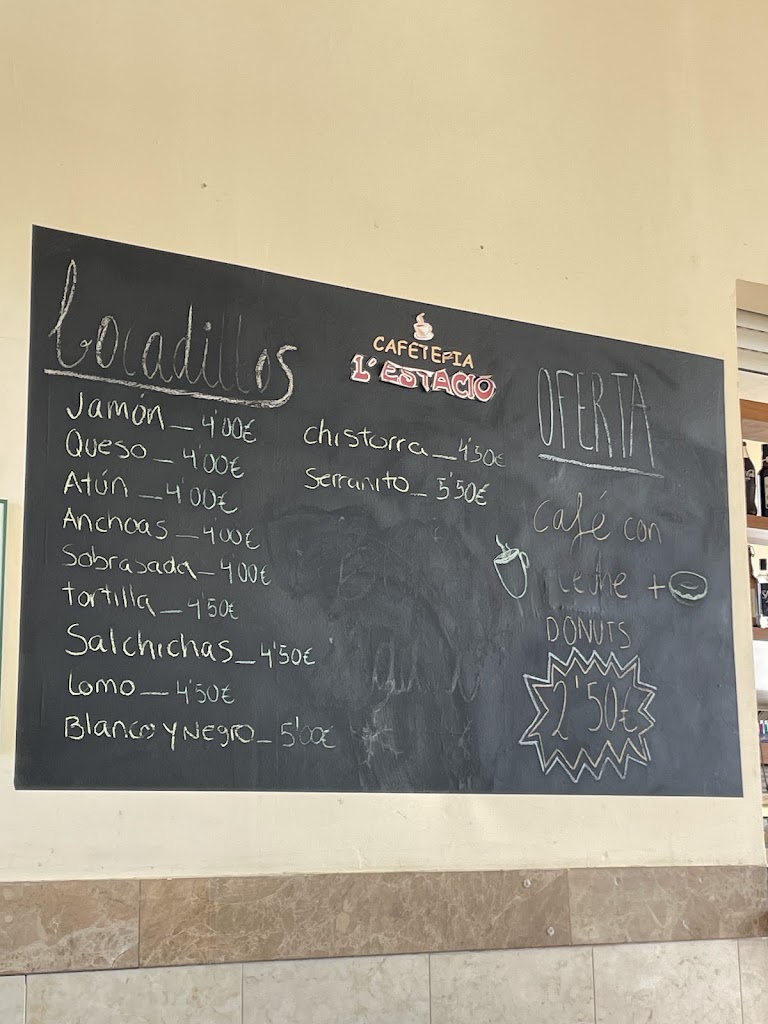 bocadillos
Jamón_4'00€
Queso_4'00€
Atún_4'00€
Anchoas_4'00€
Sobrasada_4'00€
tortilla_4'50€
Salchichas_4'50€
Lomo_4'50€
Blanco y Negro_5'00€
CAFETERIA
L'ESTACIÓ
chistorra_4'50€
Serranito_5'50€
OFERTA
Café con
Leche +
DONUTS
2'50€